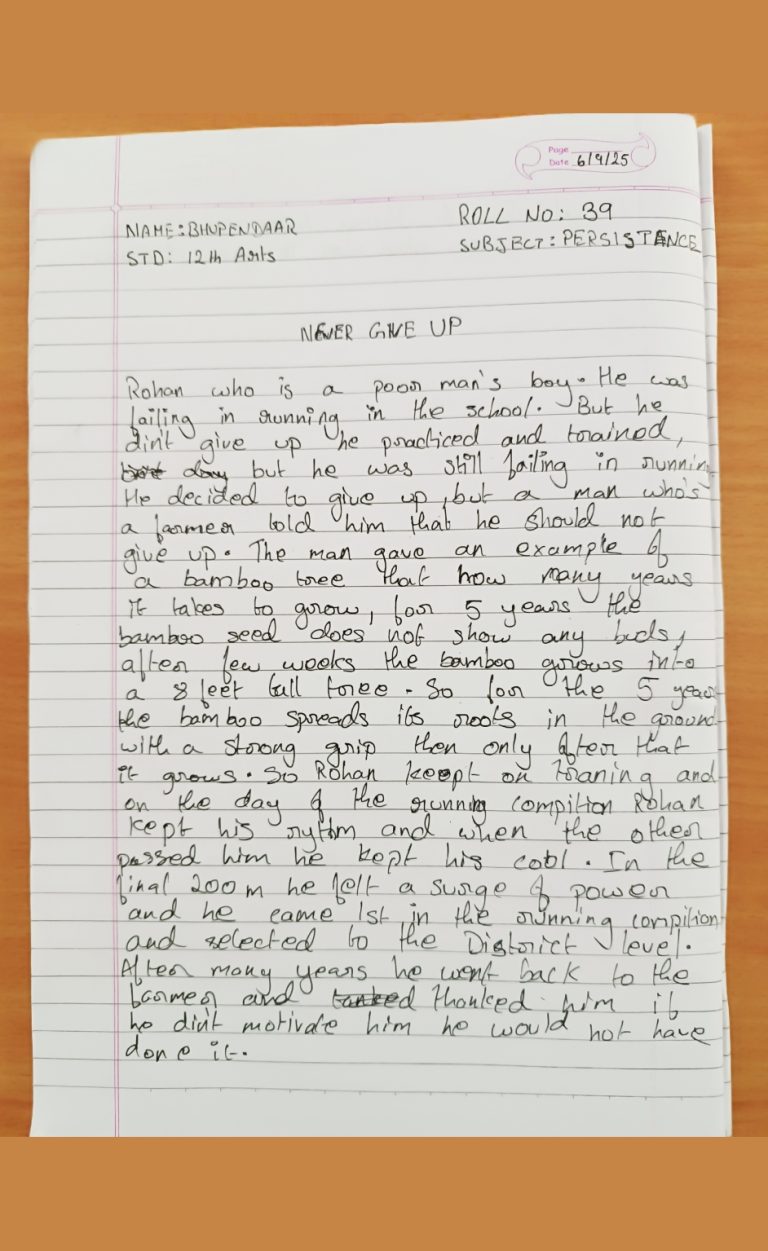 Page
Date 6/9/25
NAME: BHUPENDAAR
ROLL NO: 39
STD: 12th Arts
SUBJECT: PERSISTANCE
NEVER GIVE UP
Rohan who is a poor man's boy. He was
failing in running in the school. But he
din't give up he practiced and trained,
but day but he was still failing in running
He decided to give up, but a man who's
a farmer told him that he should not
give up. The man gave an example of
a bamboo tree that how many years
it takes to grow, for 5 years the
bamboo seed does not show any buds,
after few weeks the bamboo grows into
a 8 feet tall tree. So for the 5 years
the bamboo spreads its roots in the ground
with a strong grip then only after that
it grows. So Rohan keept on traning and
on the day of the running compition Rohan
kept his rythm and when the other
passed him he kept his cool. In the
final 200 m he felt a surge of power
and he came 1st in the running compition
and selected to the District level.
After many years he went back to the
farmer and tanked thanked him if
he din't motivate him he would not have
done it.